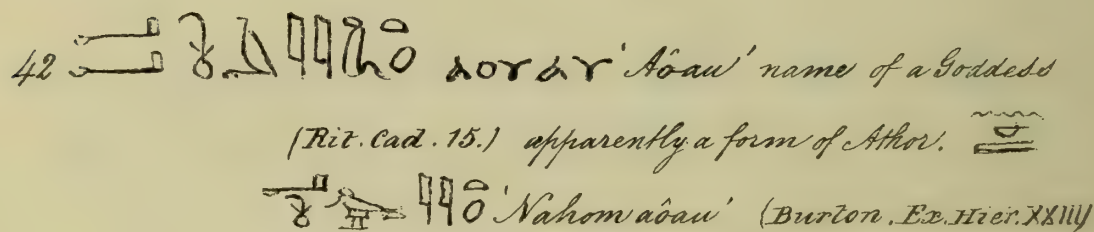 42 ⲁⲟⲩⲁⲩ 'Aôau' name of a Goddess
(Rit. Cad. 15.) apparently a form of Athor.
'Nahom aôau' (Burton. Ex. Hier. XXIII)